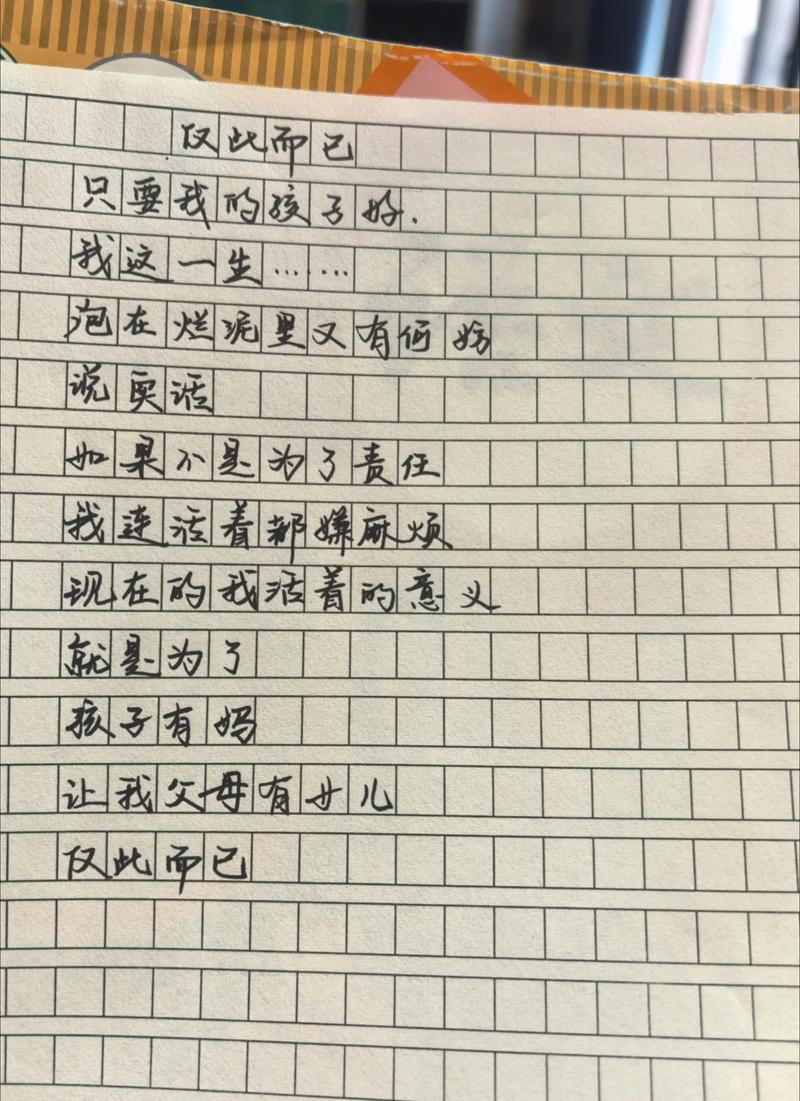 仅此而已
只要我的孩子好.
我这一生……
泡在烂泥里又有何妨
说实话
如果不是为了责任
我连活着都嫌麻烦
现在的我活着的意义
就是为了
孩子有妈
让我父母有女儿
仅此而已